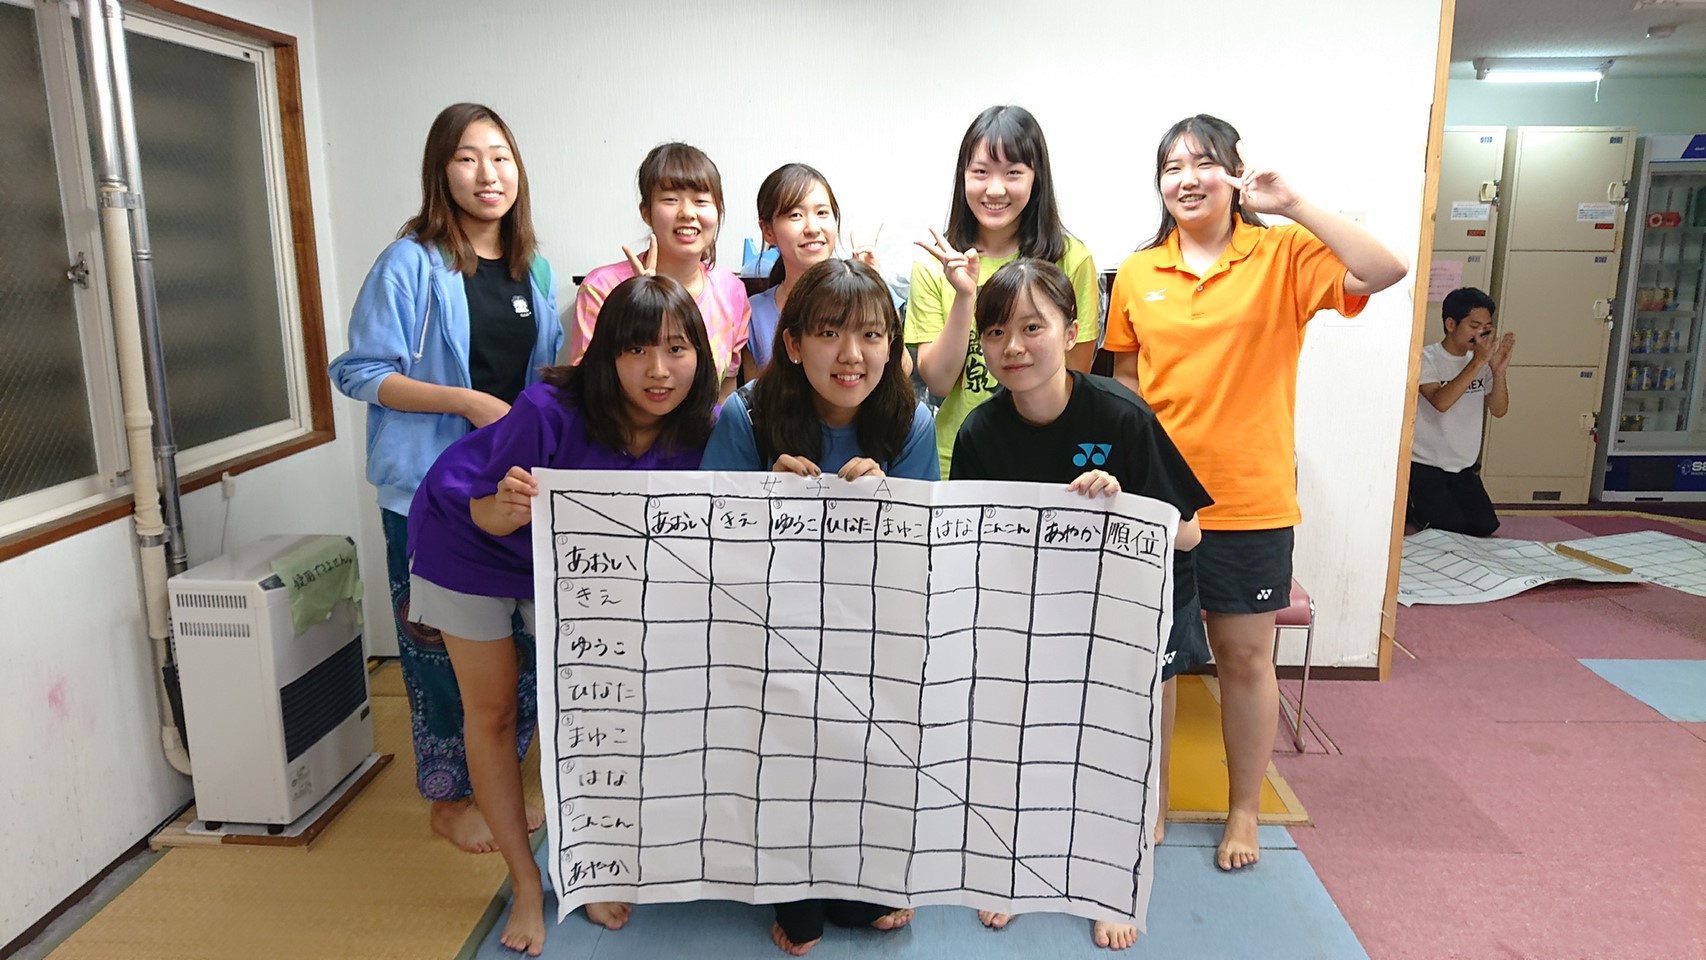 女子A
① あおい ② きえ ③ ゆうこ ④ ひなた ⑤ まゆこ ⑥ はな ⑦ こんこん ⑧ あやか 順位
① あおい
② きえ
③ ゆうこ
④ ひなた
⑤ まゆこ
⑥ はな
⑦ こんこん
⑧ あやか
泉